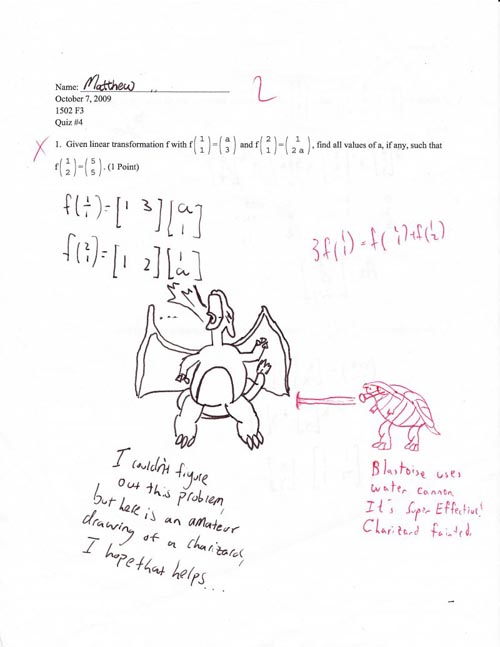 Name: Matthew
2
October 7, 2009
1502 F3
Quiz #4
X 1. Given linear transformation f with f(1 1)=(a 3) and f(2 1)=(1 2a), find all values of a, if any, such that
f(1 2)=(5 5). (1 Point)
f(1 1)=[1 3][a 1]
f(2 1)=[1 2][1 a]
3f(1 1)=f( 1)+f(1 2)
...
I couldn't figure
out this problem,
but here is an amateur
drawing of a charizard,
I hope that helps...
Blastoise uses
water cannon
It's Super Effective!
Charizard fainted.